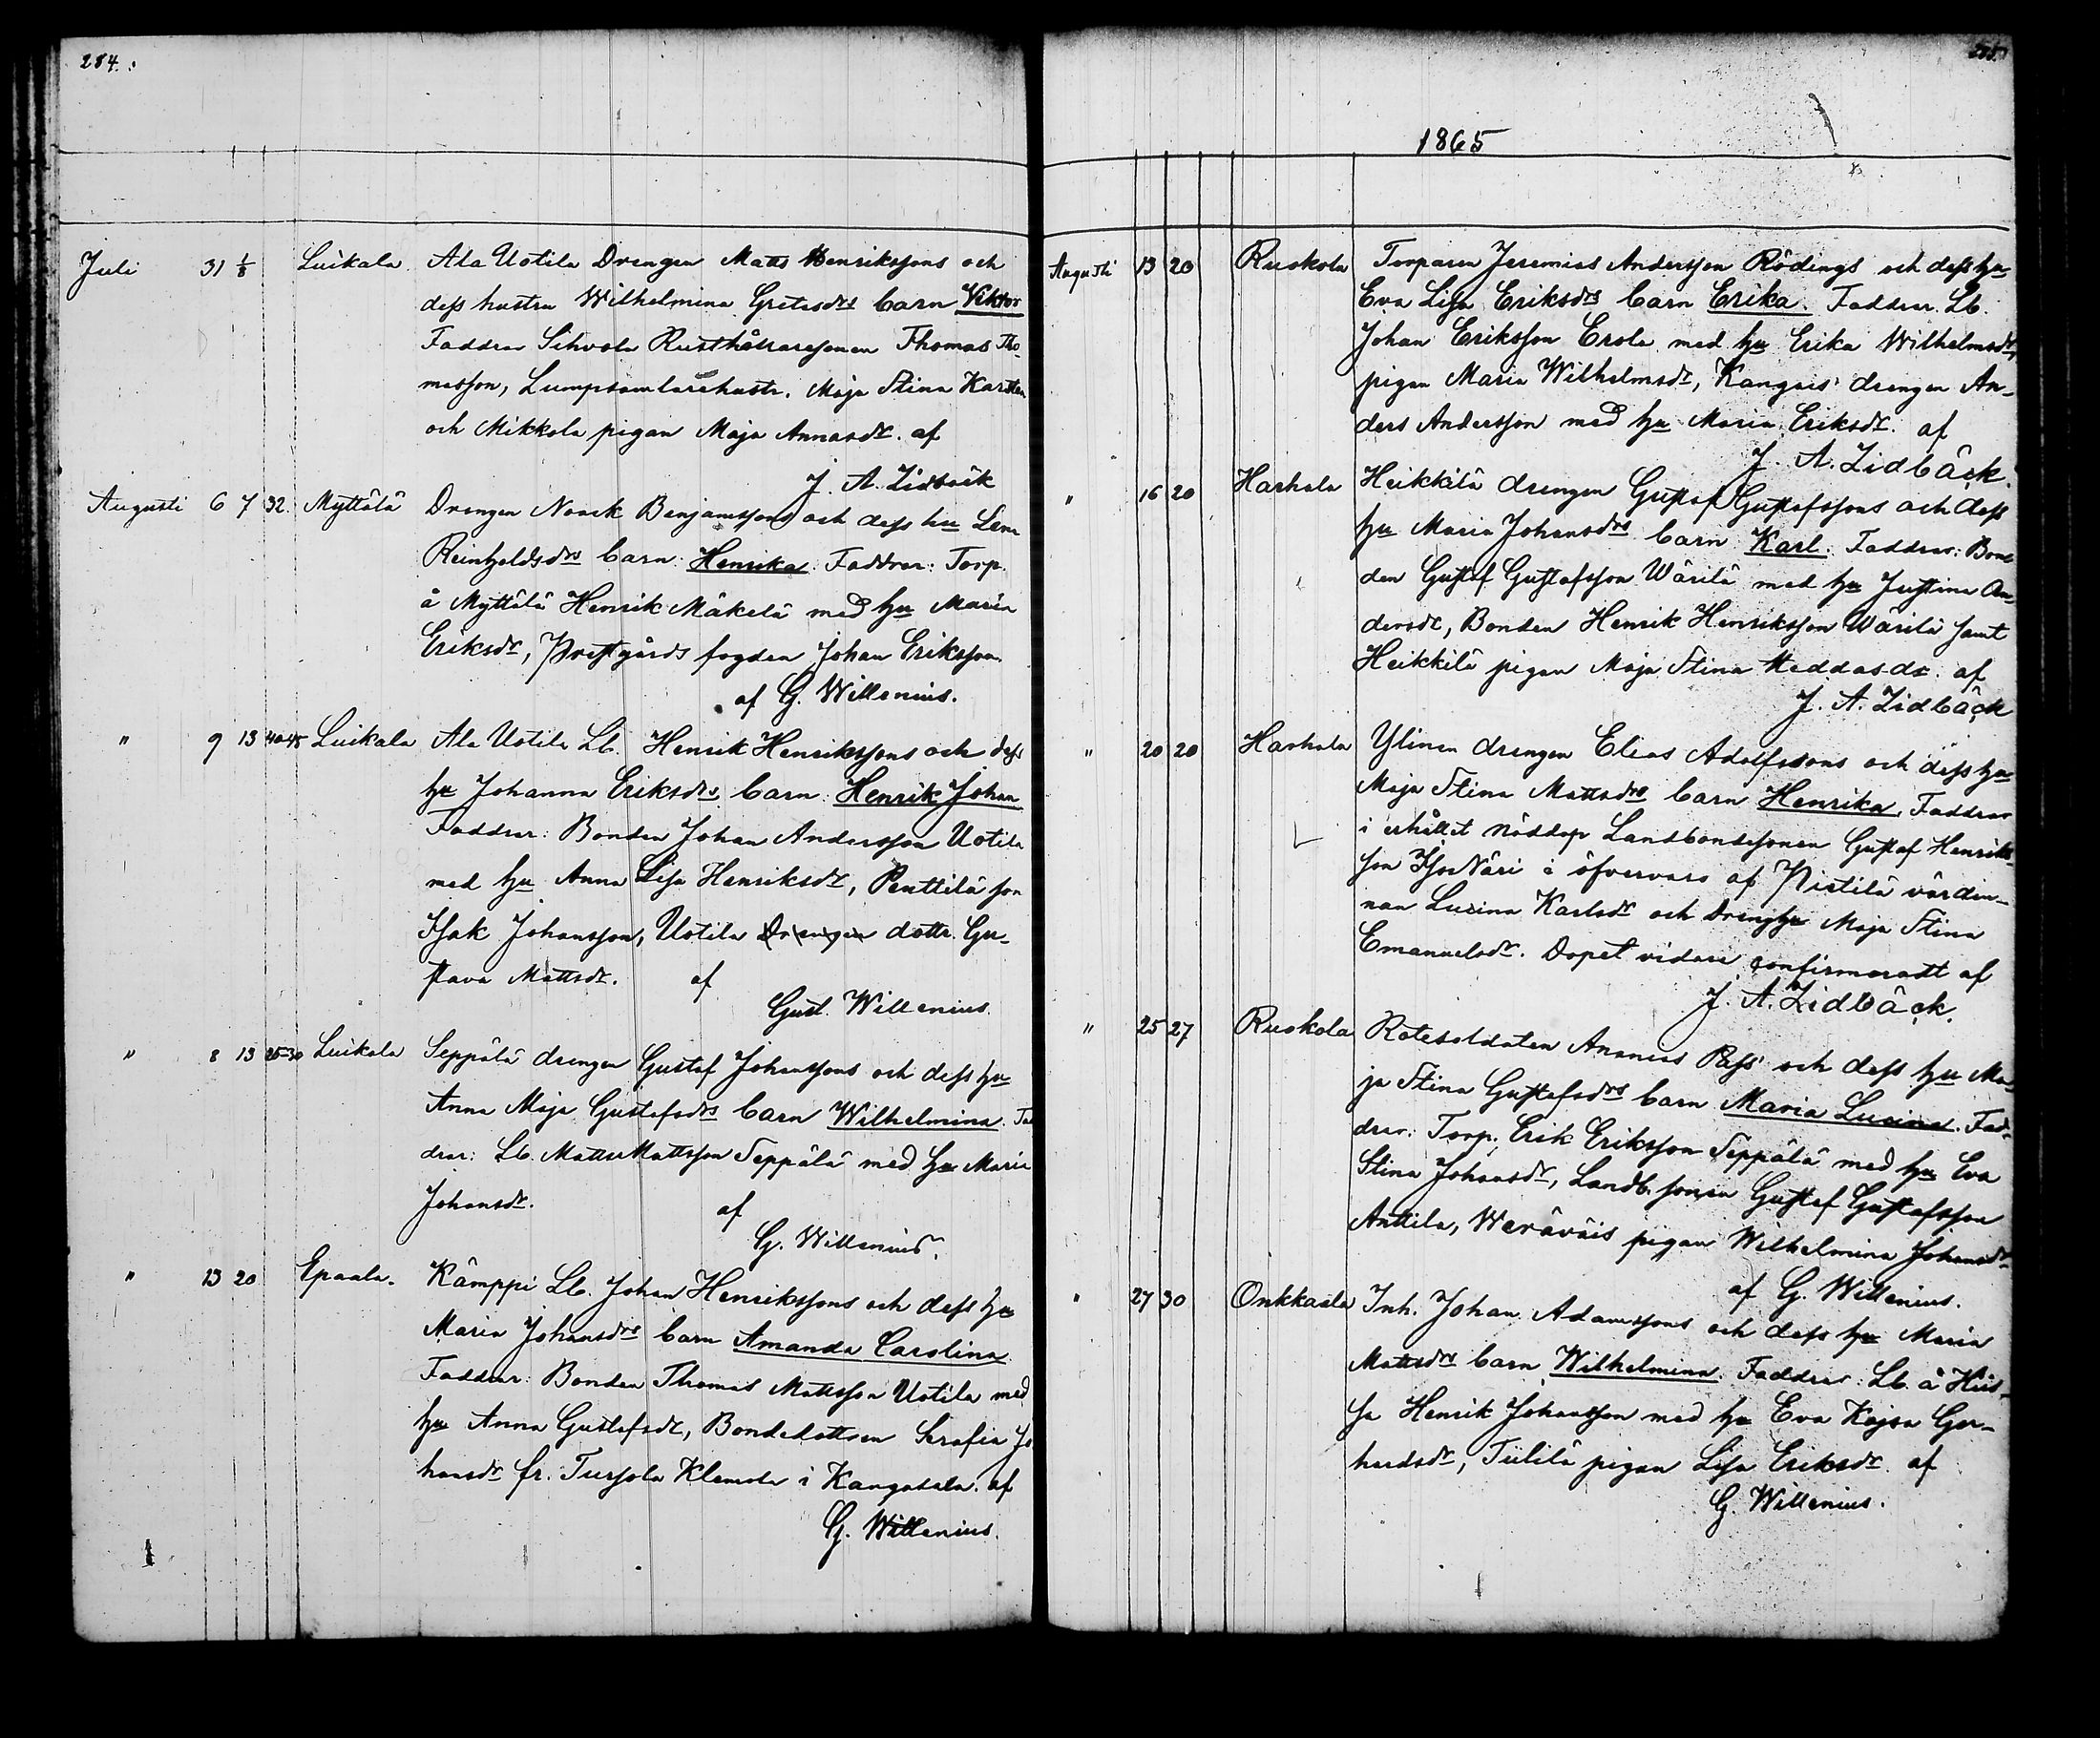 284.
Juli 31 1/8 Luikala. Ala Uotila Drengen Matts Henrikssons och
dess hustru Wilhelmina Gretasdrs barn Viktor
Faddrar Sihvola Rusthållaresonen Thomas Tho-
masson, Lumpsamlarehustr. Maja Stina Karsten
och Mikkola pigan Maja Annasdr. af
J. A. Lidbäck
Augusti 6 7 32. Myttälä Drengen Noack Benjamssons och dess hu Lena
Reinholdsdrs barn: Henrika. Faddrar: Torp.
å Myttälä Henrik Mäkelä med hu Maria
Eriksdr, Prestgårds fogden Johan Eriksson.
af G. Willenius.
" 9 13 40-45 Luikala Ala Uotila Lb. Henrik Henrikssons och dess
hu Johanna Eriksdrs barn: Henrik Johan
Faddrar: Bonden Johan Andersson Uotila
med hu Anna Lisa Henriksdr, Penttilä son
Isak Johansson, Uotila Drengen dottr. Gu-
stava Mattsdr. af
Gust. Willenius.
" 8 13 25-30 Luikala Seppälä drengen Gustaf Johanssons och dess hu
Anna Maja Gustafsdrs barn Wilhelmina. Fad
drar: Lb. Matts Mattsson Seppälä med hu Maria
Johansdr. af
G. Willenius.
" 13 20 Epaala. Kämppi Lb. Johan Henrikssons och dess hu
Maria Johansdrs barn Amanda Carolina.
Faddrar: Bonden Thomas Mattsson Uotila med
hu Anna Gustafsdr, Bondedottren Serafia Jo
hansdr fr. Tursola Klemola i Kangasala. af
G. Willenius.
285.
1865
Augusti 13 20 Ruokola Torparen Jeremias Andersson Rödings och dess hu
Eva Lisa Eriksdrs barn Erika. Faddrar. Lb.
Johan Eriksson Erola med hu Erika Wilhelmsdr,
pigan Maria Wilhelmsdr, Kangais drengen An-
ders Andersson med hu Maria Eriksdr. af
J. A. Lidbäck.
" 16 20 Harhala Heikkilä drengen Gustaf Gustafssons och dess
hu Maria Johansdrs barn Karl. Faddrar: Bon-
den Gustaf Gustafsson Wärilä med hu Justina An-
dersdr, Bonden Henrik Henriksson Wärilä samt
Heikkilä pigan Maja Stina Heddasdr. af
J. A. Lidbäck
" 20 20 Harhala Ylinen drengen Elias Adolfssons och dess hu
Maja Stina Mattsdrs barn Henrika. Faddrar
i erhållet nöddop Landbondesonen Gustaf Henriks-
son Iso Näri i öfvervaro af Pietilä värdin-
nan Lucina Karlsdr och Drenghu Maja Stina
Emanuelsdr. Dopet vidare confirmeradt af
J. A. Lidbäck.
" 25 27 Ruokola Rotesoldaten Ananias Pass och dess hu Ma-
ja Stina Gustafsdrs barn Maria Lucina. Fad-
drar: Torp. Erik Eriksson Seppälä med hu Eva
Stina Johansdr, Landb. sonen Gustaf Gustafsson
Anttila, Weräväis pigan Wilhelmina Johansdr
af G. Willenius.
" 27 30 Onkkaala Inh. Johan Adamssons och dess hu Maria
Mattsdrs barn Wilhelmina. Faddrar: Lb. å Hiis-
sa Henrik Johansson med hu Eva Kajsa Ger-
hardsdr, Tiililä pigan Lisa Eriksdr. af
G. Willenius.